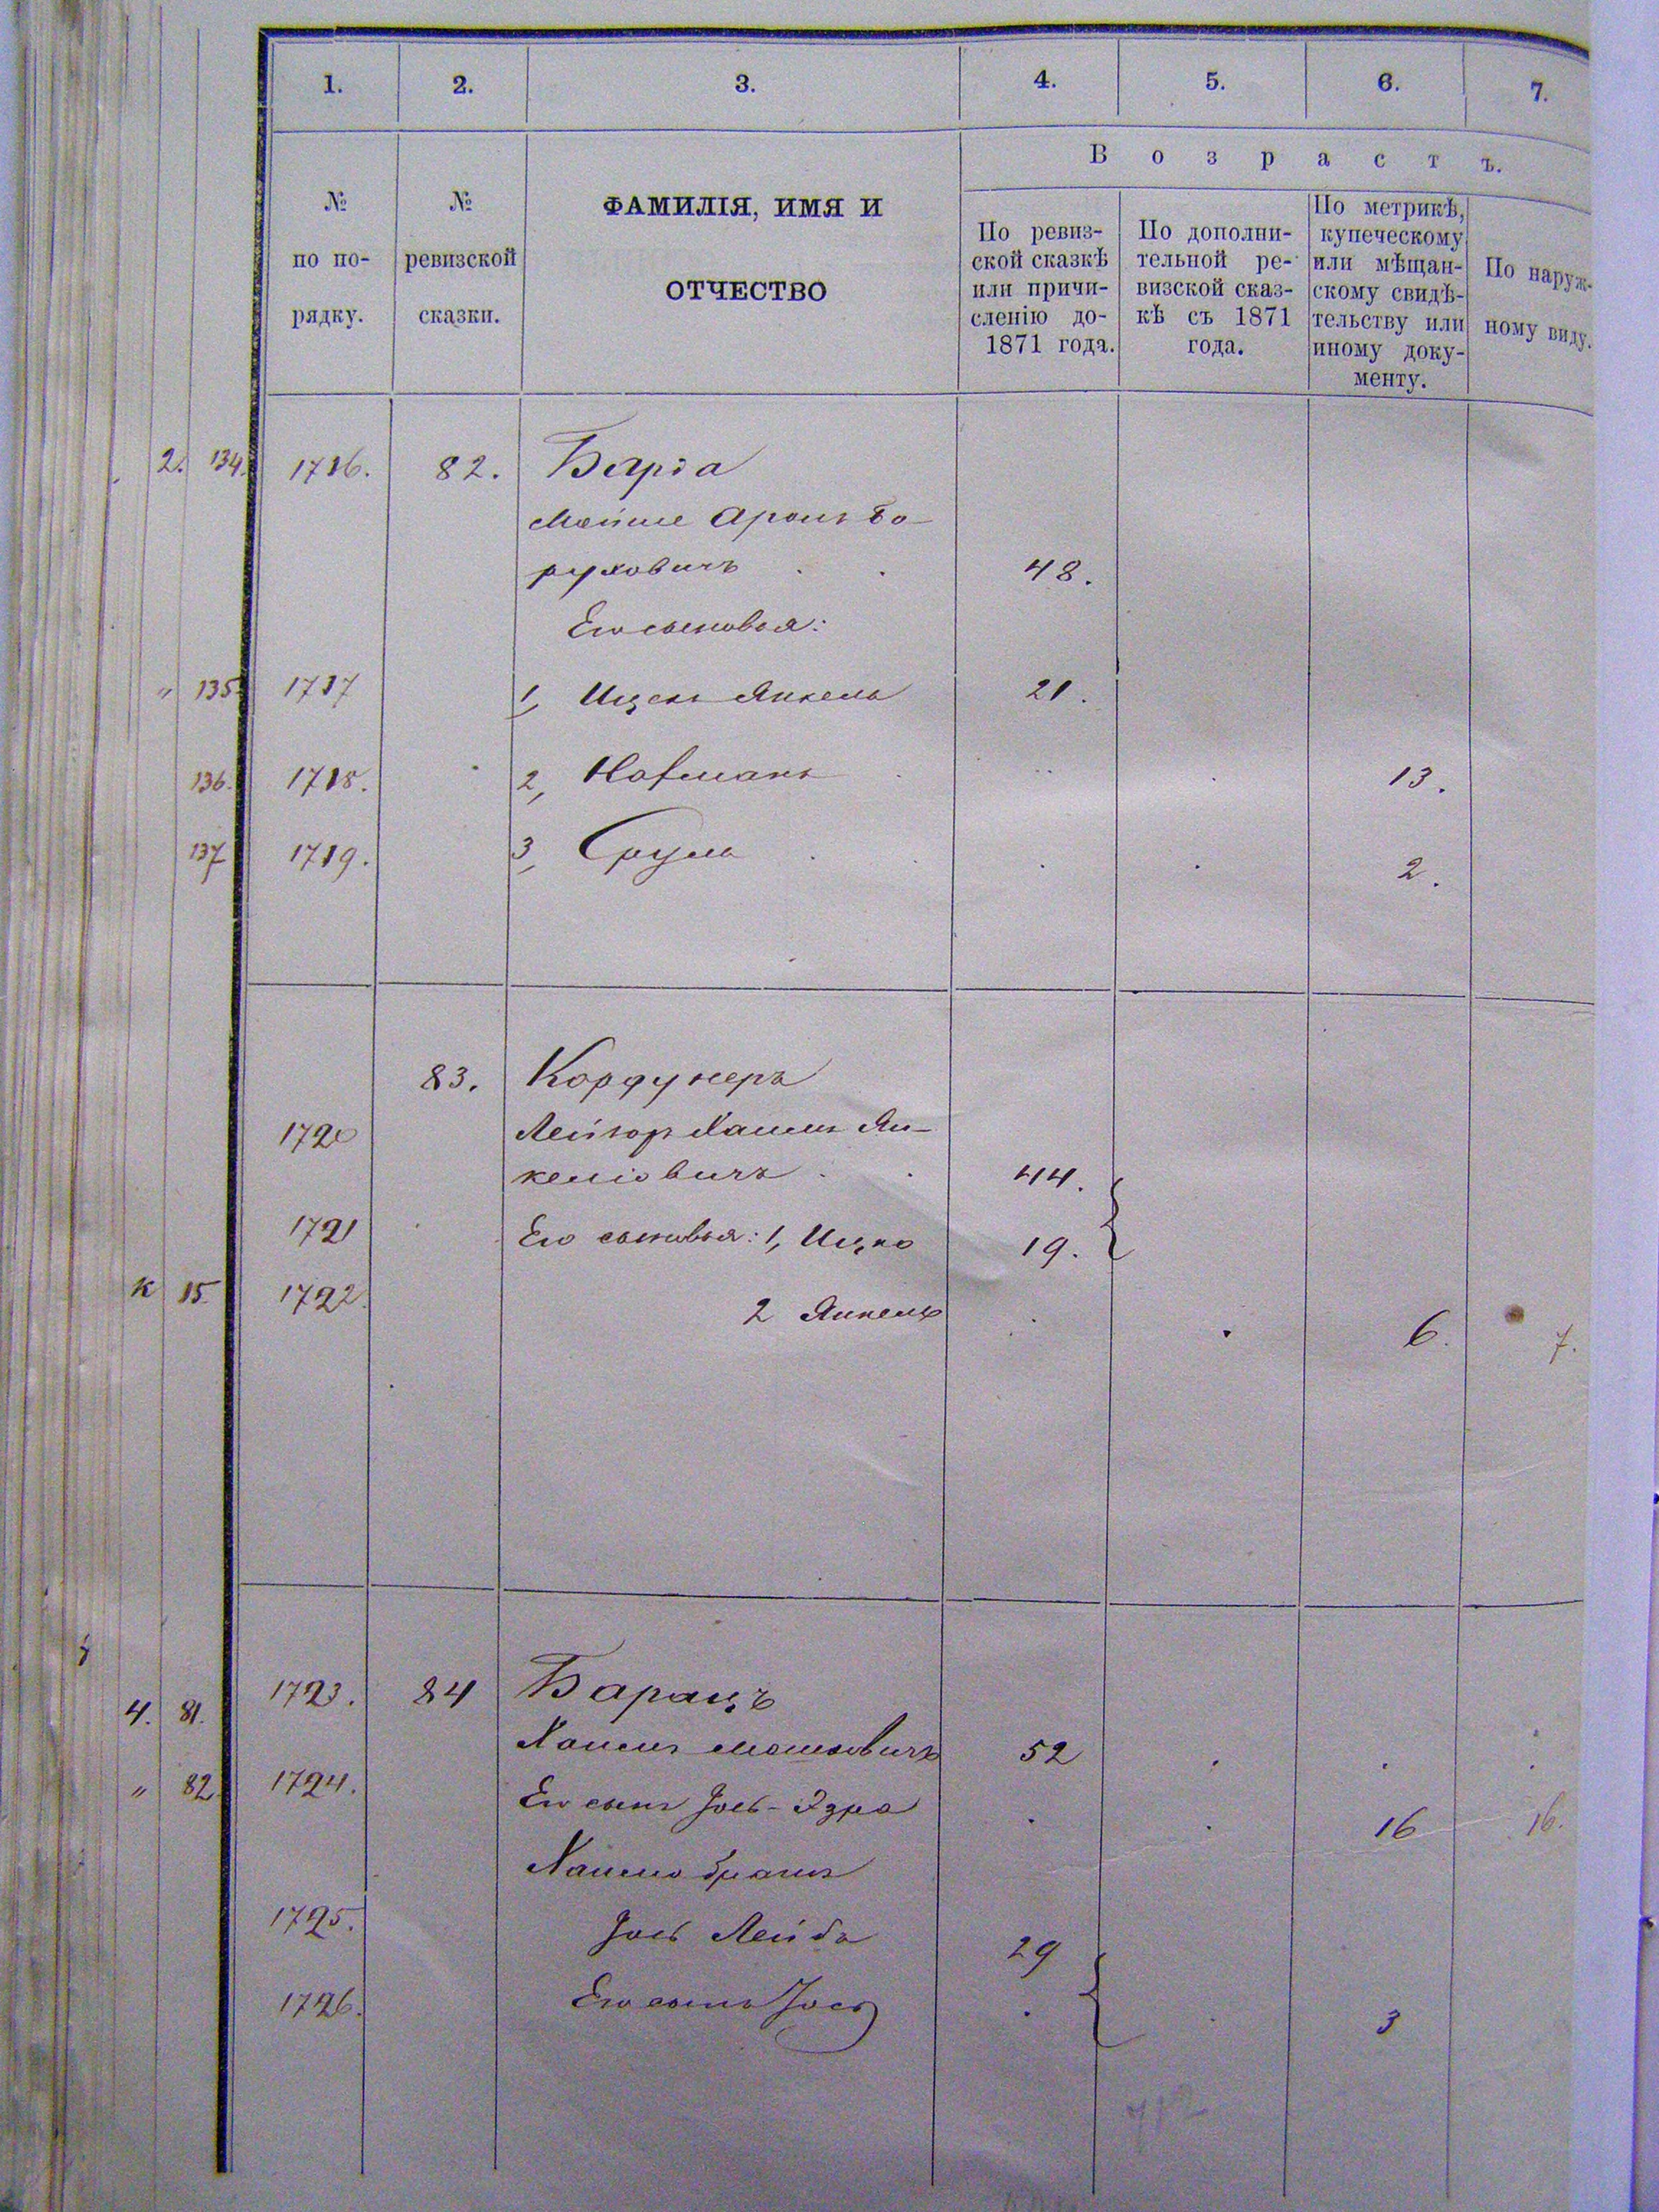 1. 2. 3. 4. 5. 6. 7.
№ по по-рядку.
№ ревизской сказки.
ФАМИЛІЯ, ИМЯ И
ОТЧЕСТВО
Возрастъ.
По ревиз-
ской сказкѣ
или причи-
сленію до-
1871 года.
По дополни-
тельной ре-
визской сказ-
кѣ съ 1871
года.
По метрикѣ,
купеческому
или мѣщан-
скому свидѣ-
тельству или
иному доку-
менту.
По наруж-
ному виду.
2. 134. 1716. 82. Барза
Мойше Аронъ Бо-
руховичъ 48.
Его сыновья:
" 135 1717 1, Ицекъ Янкель 21.
136. 1718. 2, Нафманъ 13.
137 1719. 3, Сруль 2.
83. Кордунеръ
1720 Лейзор Хаимъ Ян-
келіовичъ 44.
1721 Его сыновья: 1, Ицко 19.
к 15 1722. 2 Янкель 6. 7.
4. 81. 1723. 84 Баранъ
Хаимъ Мошковичъ 52
" 82 1724. Его сынъ Іось-Эзра 16 16.
Хаима братъ
1725. Іось Лейба 29
1726. Его сынъ Іось 3